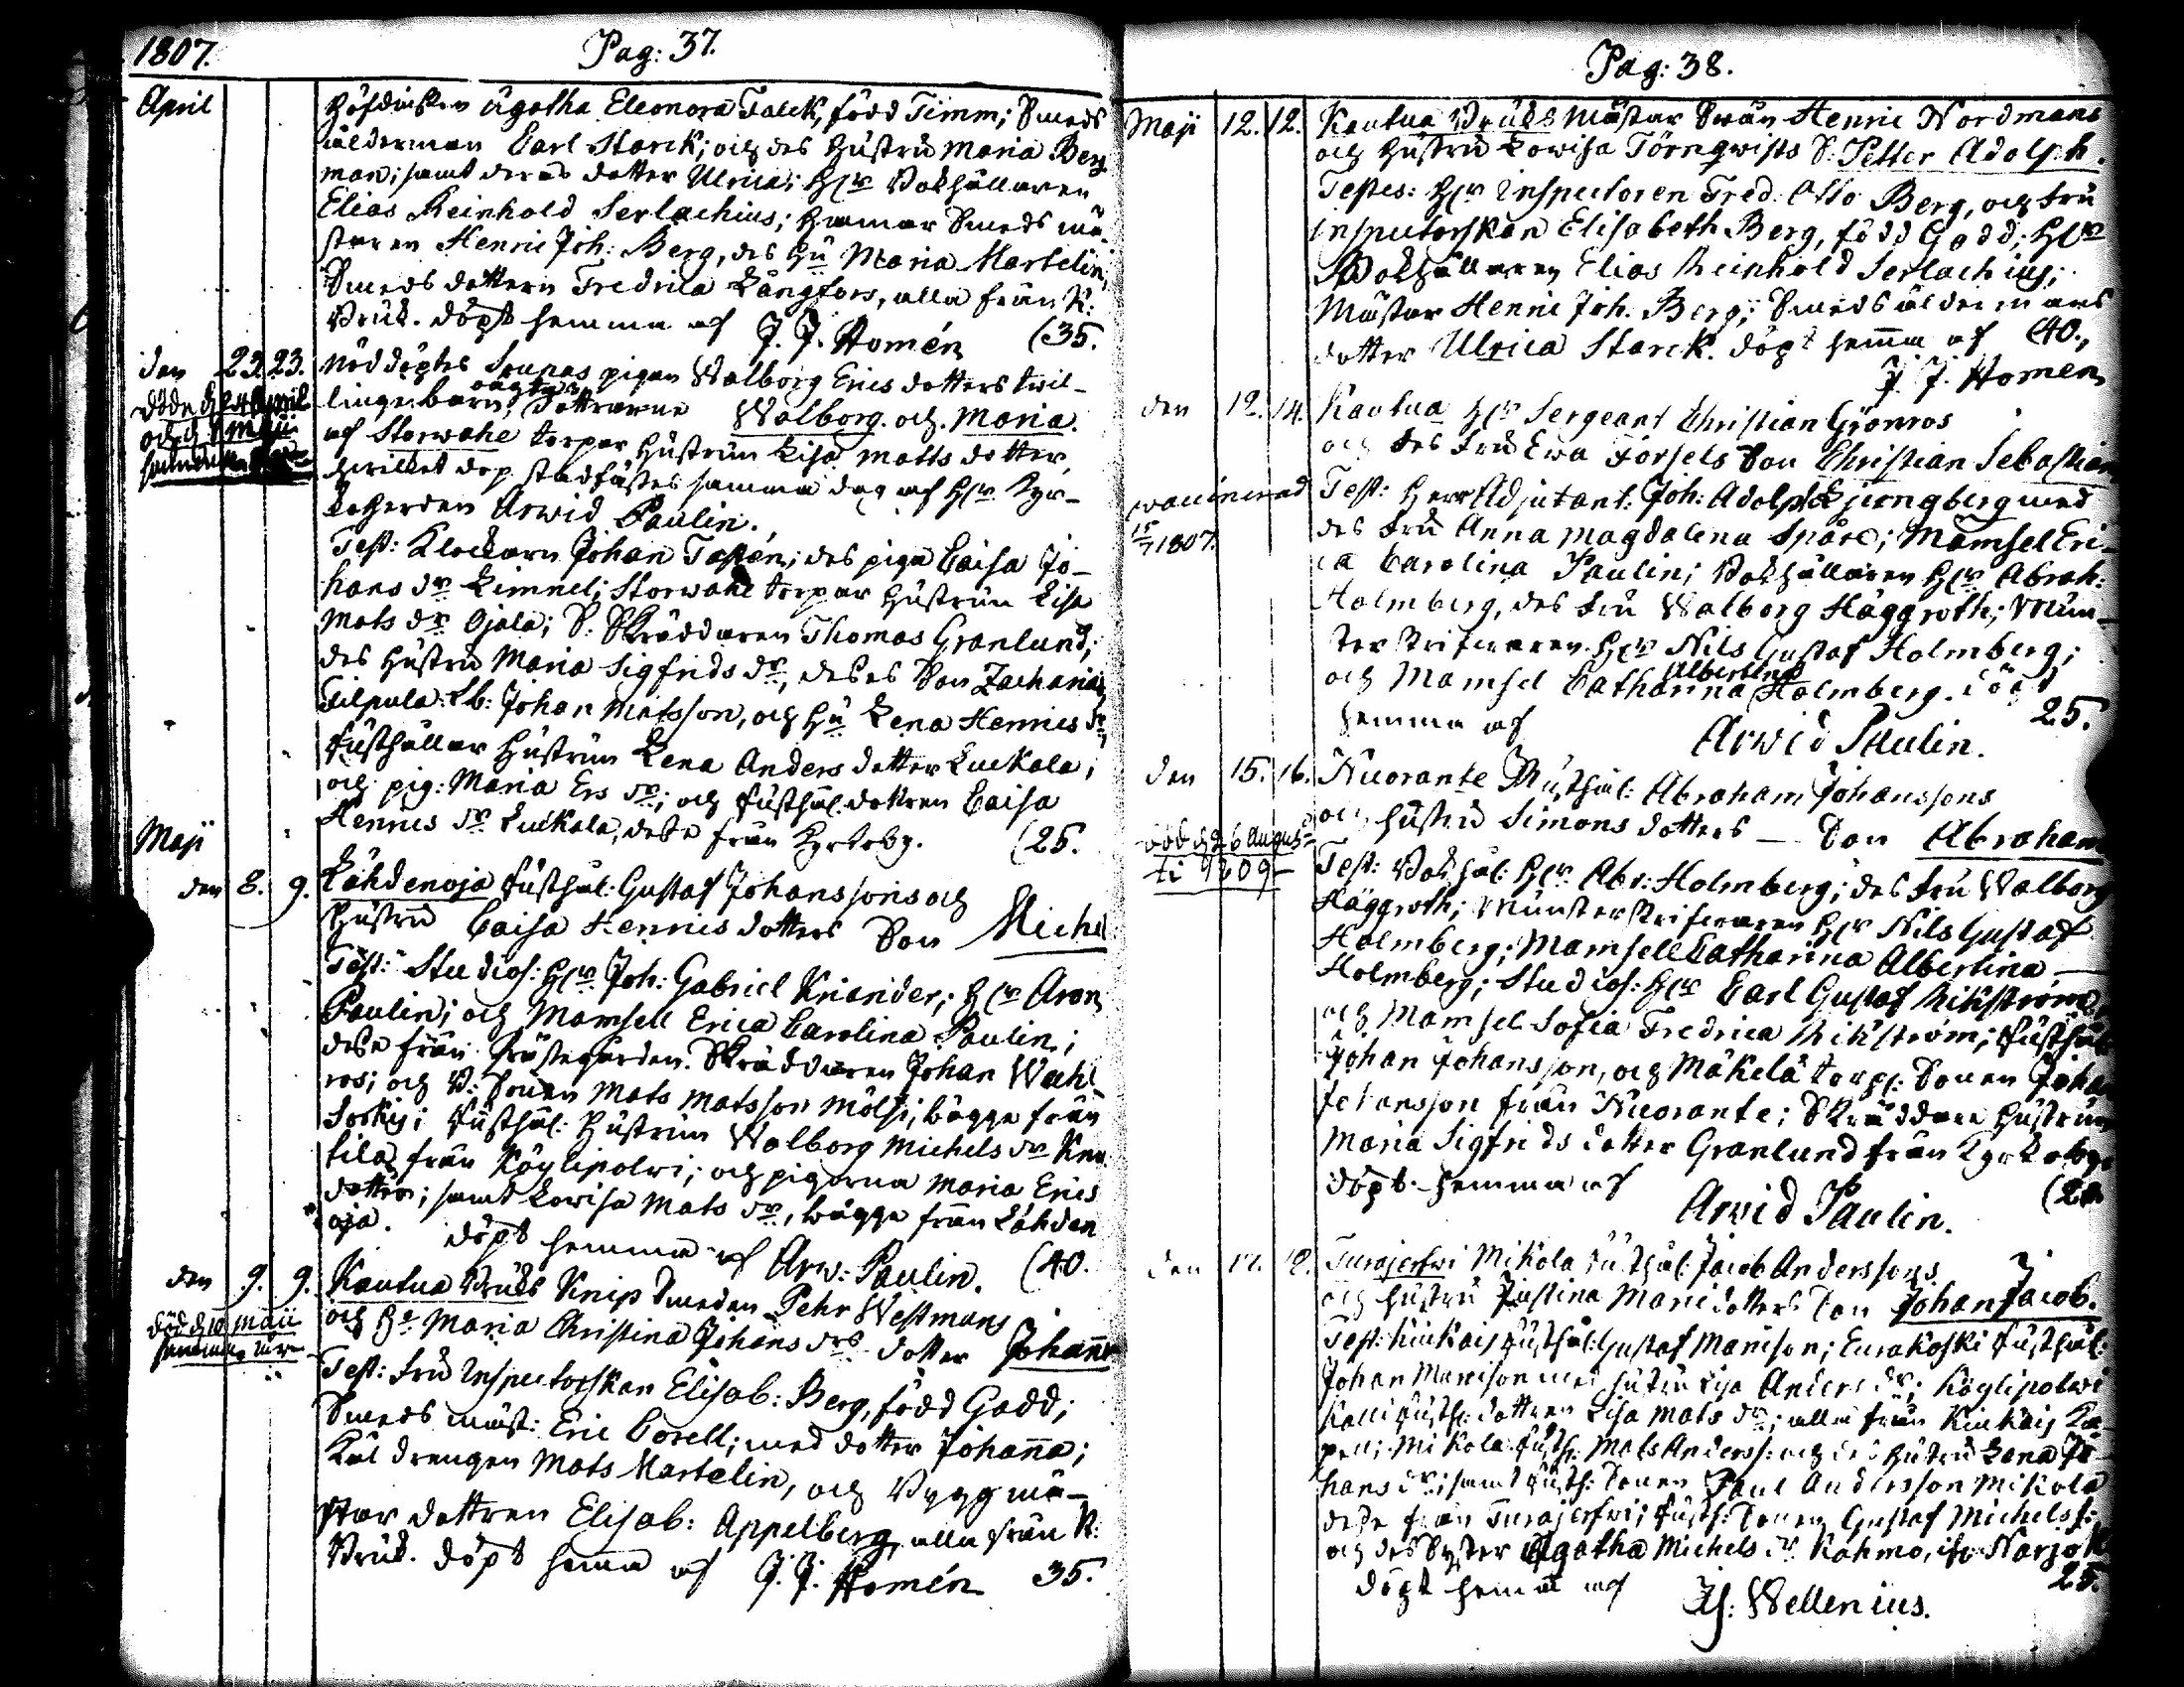 1807.
Pag: 37.
April
Agatha Eleonora Falck, född Timm; Smeds
ålderman Carl Starck; och des hustru Maria Berg
man; samt deras dotter Ulrica; Hr Bokhållaren
Elias Reinhold Serlachius; Hammar Smeds mä-
staren Henric Joh: Berg, des Hu Maria Martelin,
Smeds dottern Fredrica Långfors, alla från K:
Bruk. döpt hemma af J. J. Homén (35.
den 23. 23. nöddöptes pigan Walborg Erics dotters twil-
linge barn, oägta döttrarne Walborg och Maria.
döde d. 24 April
och d. 1 Maji
af Storwahe torpar hustrun Lisa Matts dotter,
hwilket dop stadfästes samma dag af Hr Kyr-
koherden Arwid Paulin.
Test: Klockaren Johan Tasten; des piga Caisa Jo-
hans dr Limnel; Storwahe torpar hustrun Lisa
Mats dr Ojala; S: Skräddaren Thomas Granlund,
des hustru Maria Sigfrids dr, deses Son Zacharias
Tilpula: Lb: Johan Matsson, och Hu Lena Henrics dr,
Rusthållar hustrun Lena Anders dotter Luckala;
och pig: Maria Ers dr; och Rusthål: dottren Caisa
Henrics dr Luckala, dese från Kyrkoby. (25.
Maji
den 8. 9. Lähdenoja Rusthål: Gustaf Johanssons och
hustru Caisa Henrics dotters Son Michel
Test: Studios: Hr Joh: Gabriel Kriander; Hr Aron
Paulin; och Mamsell Erica Carolina Paulin;
dese från Prästegården. Skräddaren Johan Wahl
ros; och Sonen Mats Matsson Mölsi, bägge från
Sorkis; Rusthål: Hustrun Walborg Michels dr
tila från Köylipolwi; och pigorna Maria Erics
dotter; samt Lowisa Mats dr, bägge från Lähden
oja. döpt hemma af Arw: Paulin. (40.
den 9. 9. Kautua Bruks Knip Smeden Pehr Westmans
död d 10 Maii
och Ha Maria Christina Johans drs dotter Johanna
Test: Fru Inspectorskan Elisab: Berg, född Gadd;
Smeds mäst: Eric Corell; med dotter Johanna;
Kål drengen Mats Martelin, och Byggmä-
star dottren Elisab: Appelberg, alla från K:
Bruk. döpt hemma af J. J. Homén 35.
Pag: 38.
Maji 12. 12. Kautua Bruks Mästar Swän Henric Nordmans
och hustru Lowisa Törnqwists S: Petter Adolph.
Testes: Hr Inspectoren Fred: Otto Berg, och Fru
Inspectorskan Elisabeth Berg, född Gadd; Hr
Bokhållaren Elias Reinhold Serlachius;
Mästar Henric Joh. Berg; Smeds åldermans
dotter Ulrica Starck. döpt hemma af (40.
J. J. Homén
den 12. 14. Kautua Hr Sergeant Christian Grönros
och des Fru Ewa Forsels Son Christian Sebastian
vaccinerad
15/7 1807.
Test: Herr Adjutant: Joh: Adolph Ljungberg med
des Fru Anna Magdalena Spåre; Mamsel Eri-
ca Carolina Paulin; Bokhållaren Hr Abrah:
Holmberg, des Fru Walborg Häggroth; Mün-
sterskrifwaren Hr Nils Gustaf Holmberg;
och Mamsel Catharina Albertina Holmberg. döpt
hemma af 25.
Arwid Paulin.
den 15. 16. Nuorante Rusthål: Abraham Johanssons
och hustru Simons dotters — Son Abraham
död d 26 Augus-
ti 1809
Test: Bokhål: Hr Abr: Holmberg; des Fru Walborg
Häggroth; Münsterskrifwaren Hr Nils Gustaf
Holmberg; Mamsell Catharina Albertina
Holmberg; Studios: Hr Carl Gustaf Wikström,
och Mamsel Sofia Fredrica Wikström; Rusthål
Johan Johansson, och Mäkelä torp: Sonen Johan
Johansson från Nuorante; Skräddare hustrun
Maria Sigfrids dotter Granlund från Kyrkoby
döpt hemma af
Arwid Paulin.
den Turajerfwi Mikola Rusthål: Jacob Anderssons
och hustru Justina Marci dotters Son Johan Jacob.
Test: Kiukais Rusthål: Gustaf Marcison; Eurakoski Rusthål:
Johan Marcison med hustru Lisa Anders dr; Köylipolwi
Kalli Rusth: dottren Lisa Mats dr; alla från Kiukais Ka-
pell; Mikola Rusth: Mats Anderss: och des hustru Lena Jo-
hans dr; samt Rusth: Sonen Paul Andersson Mikola
dese från Turajerfwi; Rusth: Sonen Gustaf Michelss:
och des Syster Agatha Michels dr Kahmo, ifr. Narjok
döpt hemma af 25.
Wellenius.